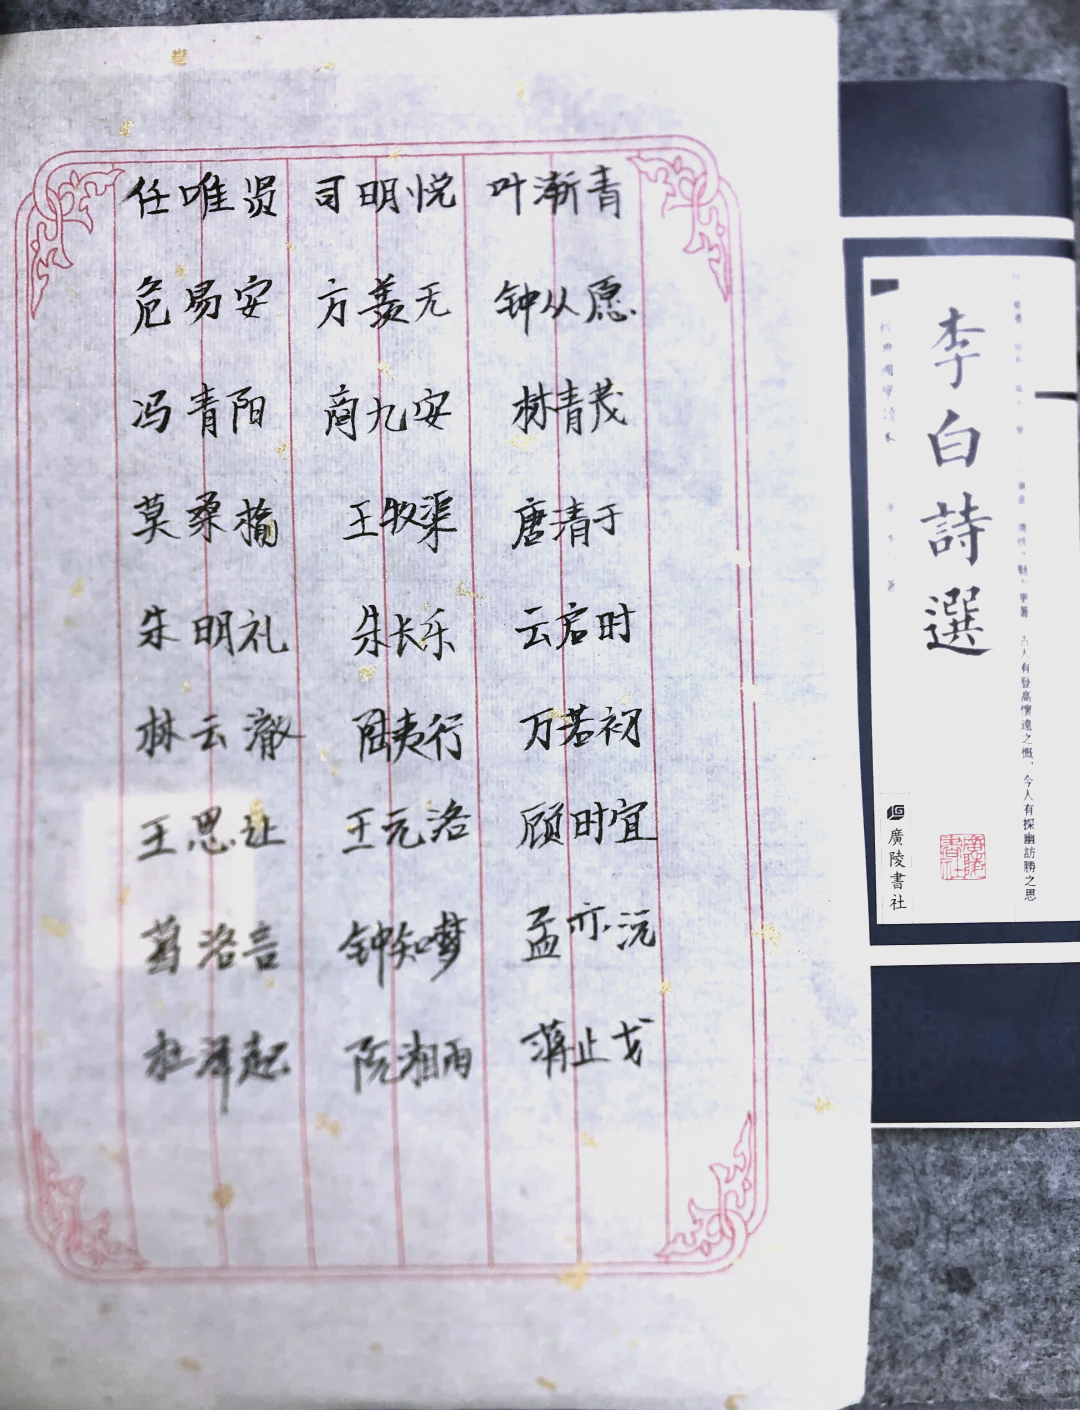 任唯贤 司明悦 叶渐青
危易安 方羡无 钟从愿
冯青阳 商九安 林青茂
莫桑榆 王牧渠 唐清于
朱明礼 朱长乐 云启时
林云澈 陆夷行 万若初
王思让 王元洛 顾时宜
葛洛言 钟知梦 孟亦沅
杜泽起 阮湘雨 蒋止戈
李白詩選
古人有登高懷遠之慨，今人有探幽訪勝之思
廣陵書社
廣陵書社